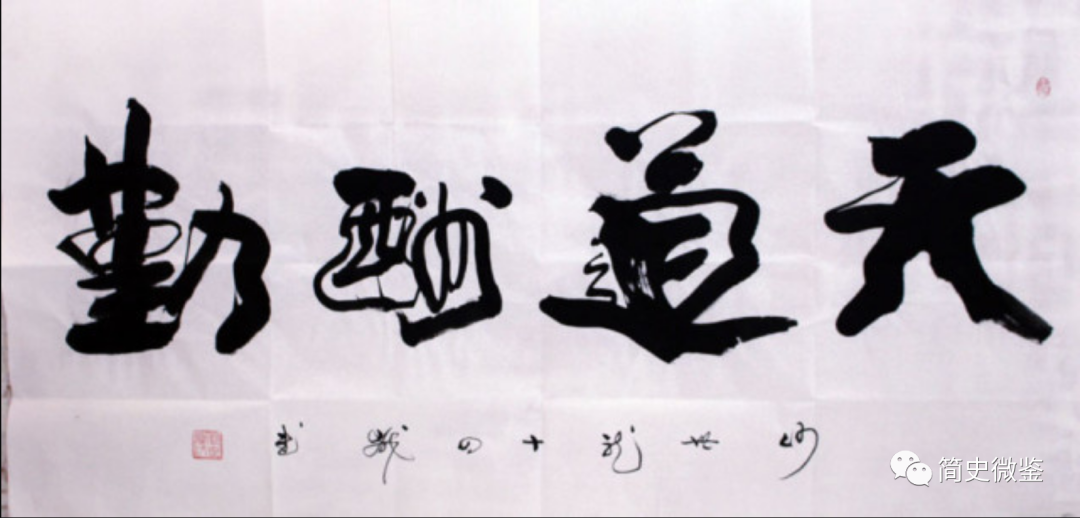 天道酬勤
世龙十四歲書
简史微鉴